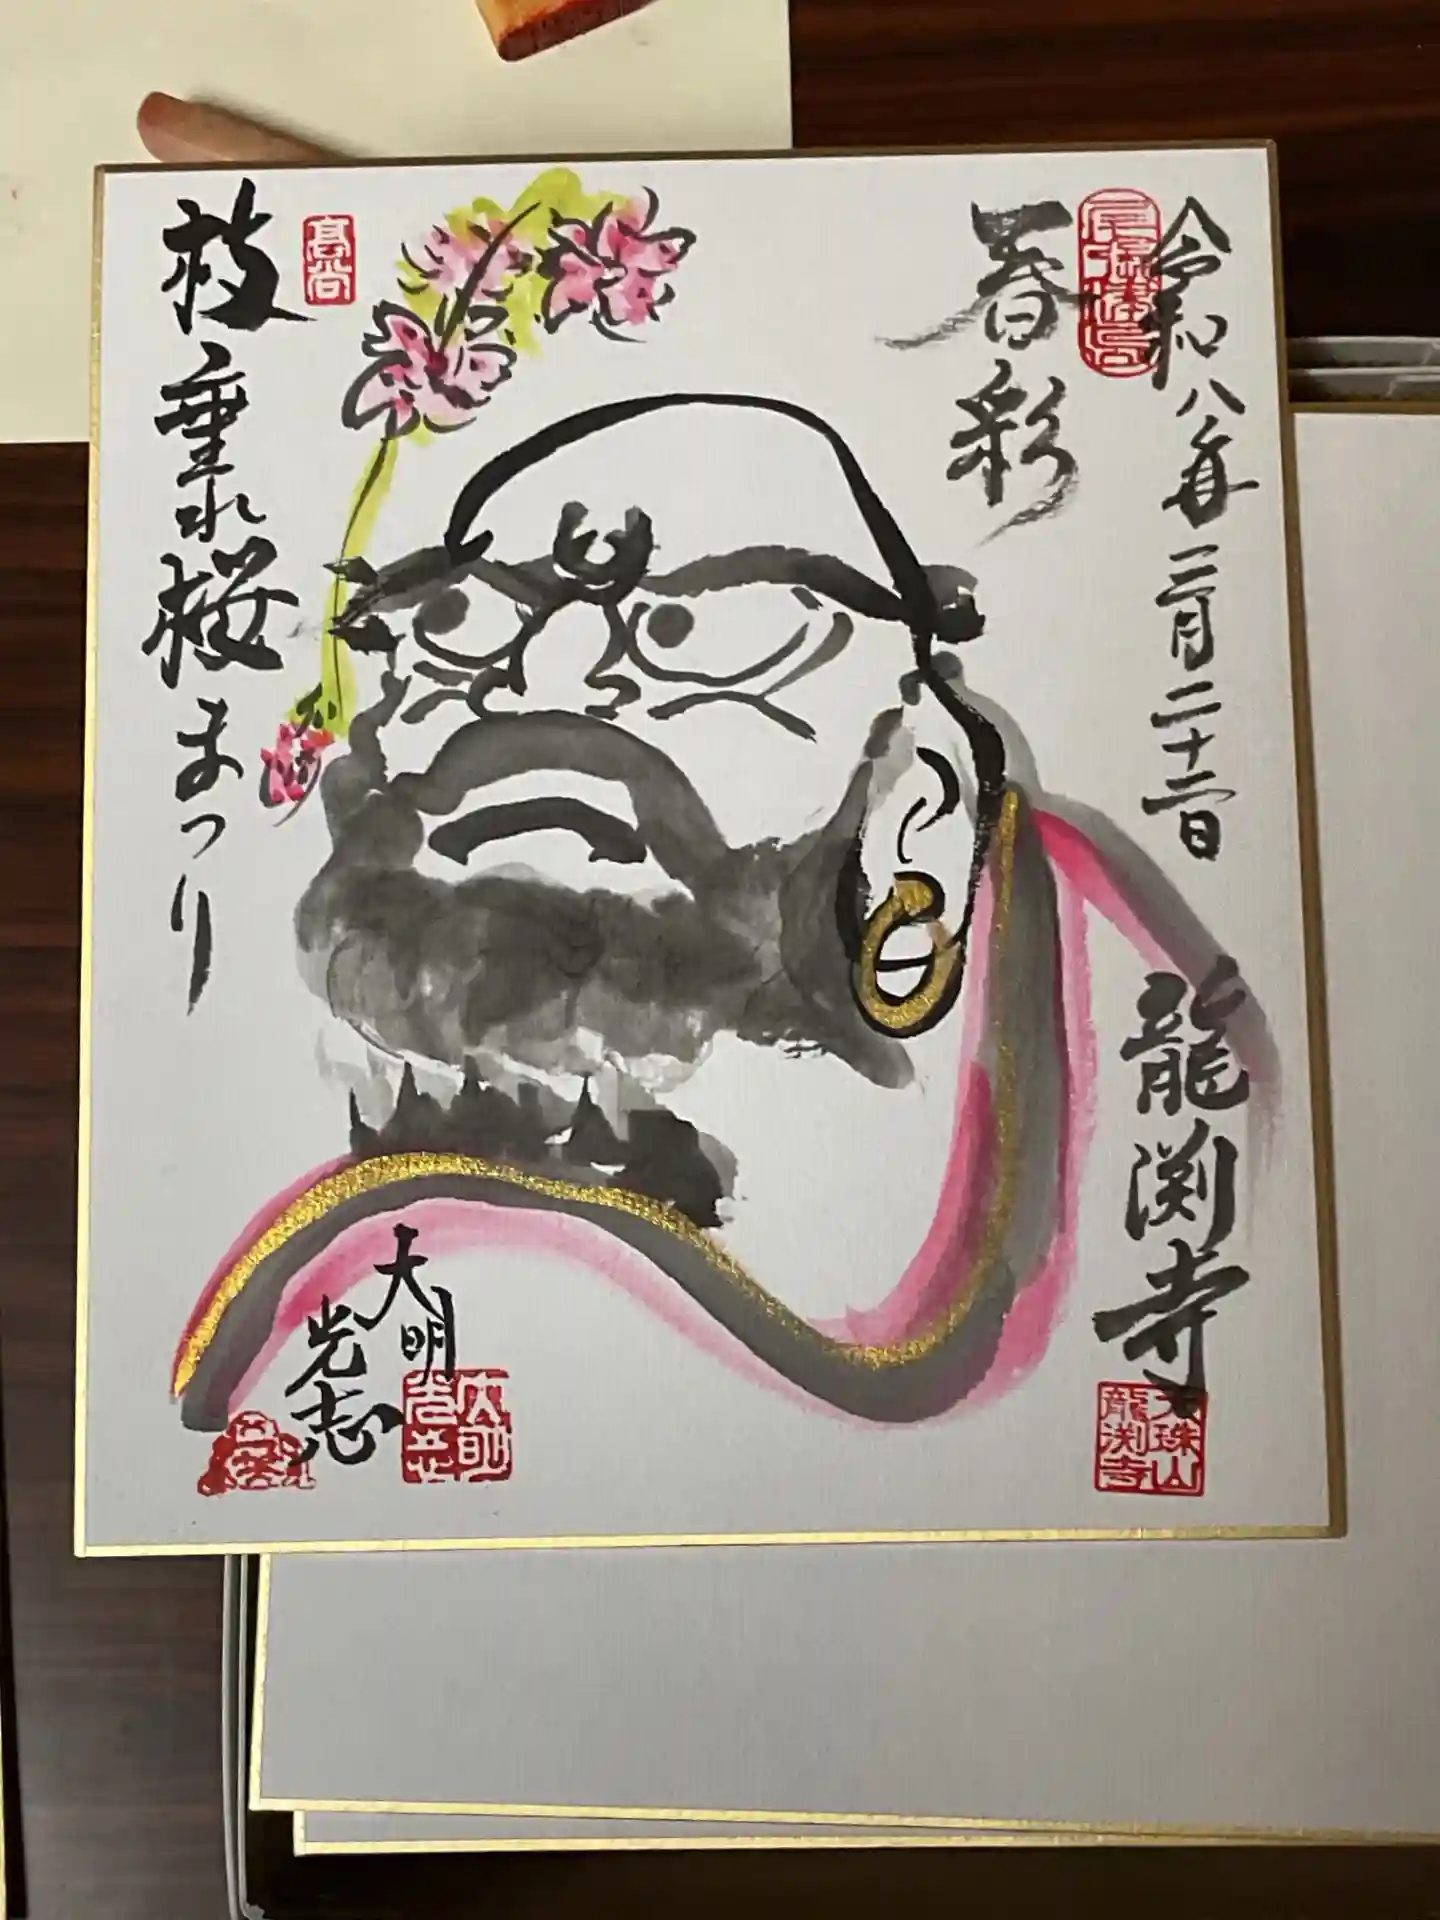 令和八年三月二十二日
龍渕寺
天珠山
龍渕寺
春彩
高尚
枝垂れ桜まつり
大明
光志
大明
光志